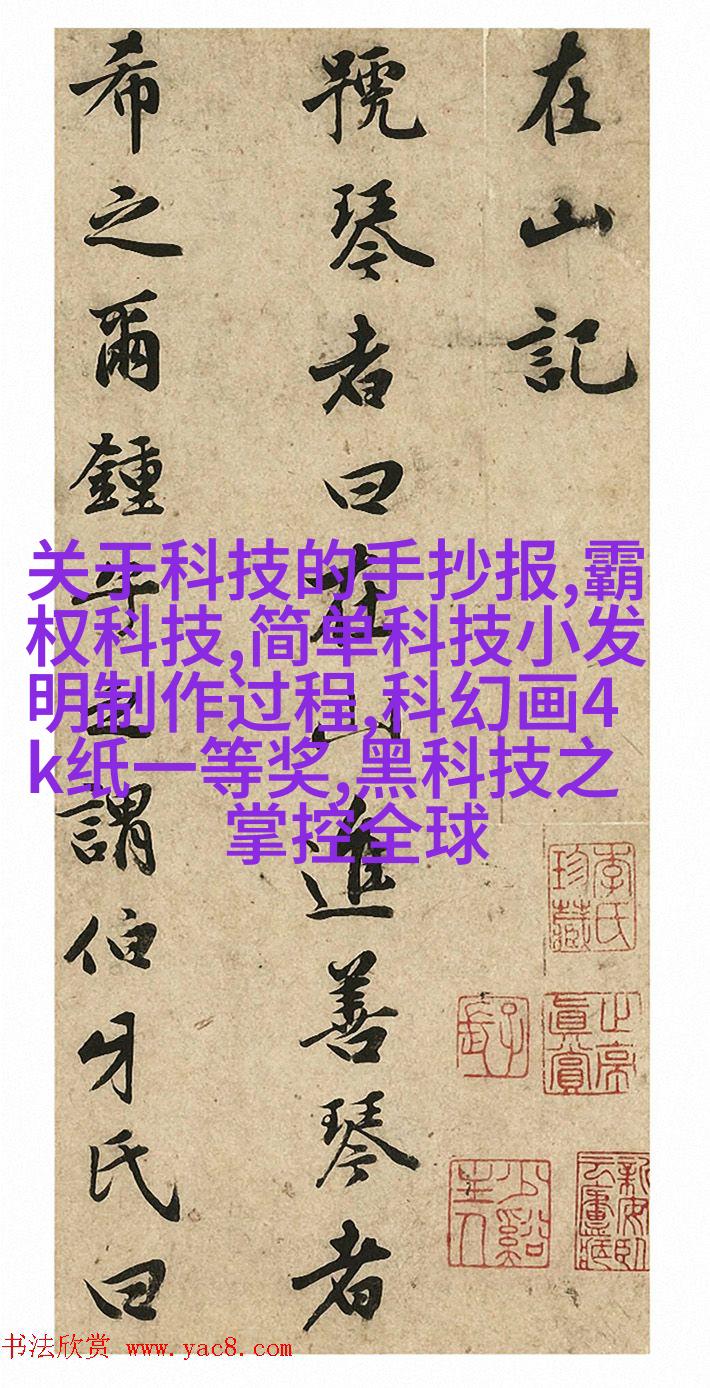 在山記
號琴者曰在山進善琴者
希之爾鍾子且謂伯牙氏曰
少谿主人
关于科技的手抄报,霸
权科技,简单科技小发
明制作过程,科幻画4
k纸一等奖,黑科技之
掌控全球
书法欣赏 www.yac8.com